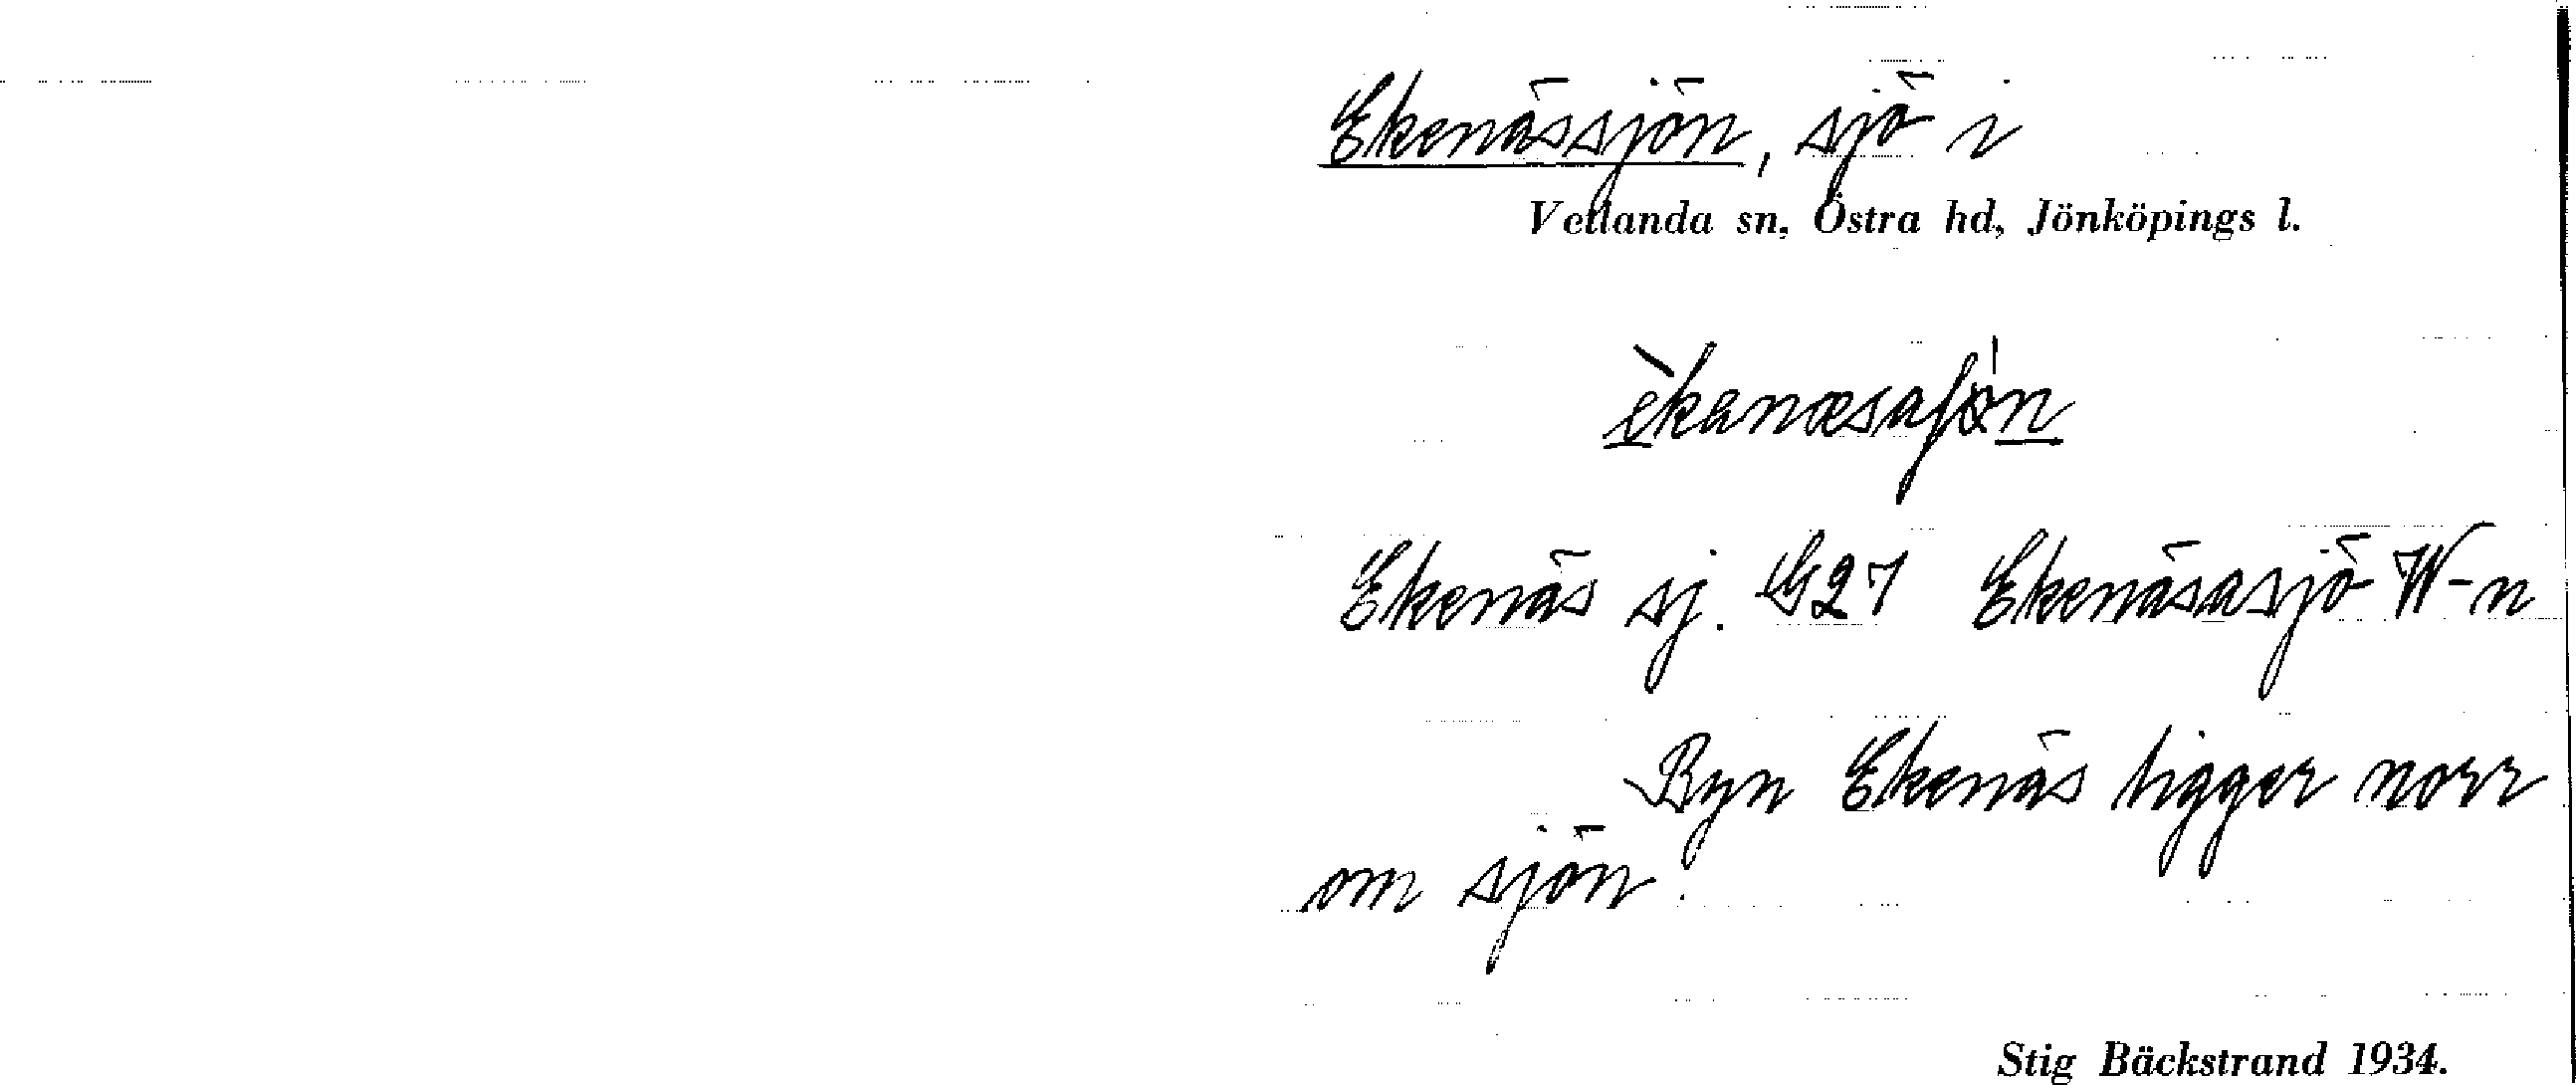 Ekenässjön, sjö i
Vetlanda sn, Östra hd, Jönköpings l.
Ekenäs sj. G27 Ekenäsasjö W-n
Byn Ekenäs ligger norr
om sjön.
Stig Bäckstrand 1934.